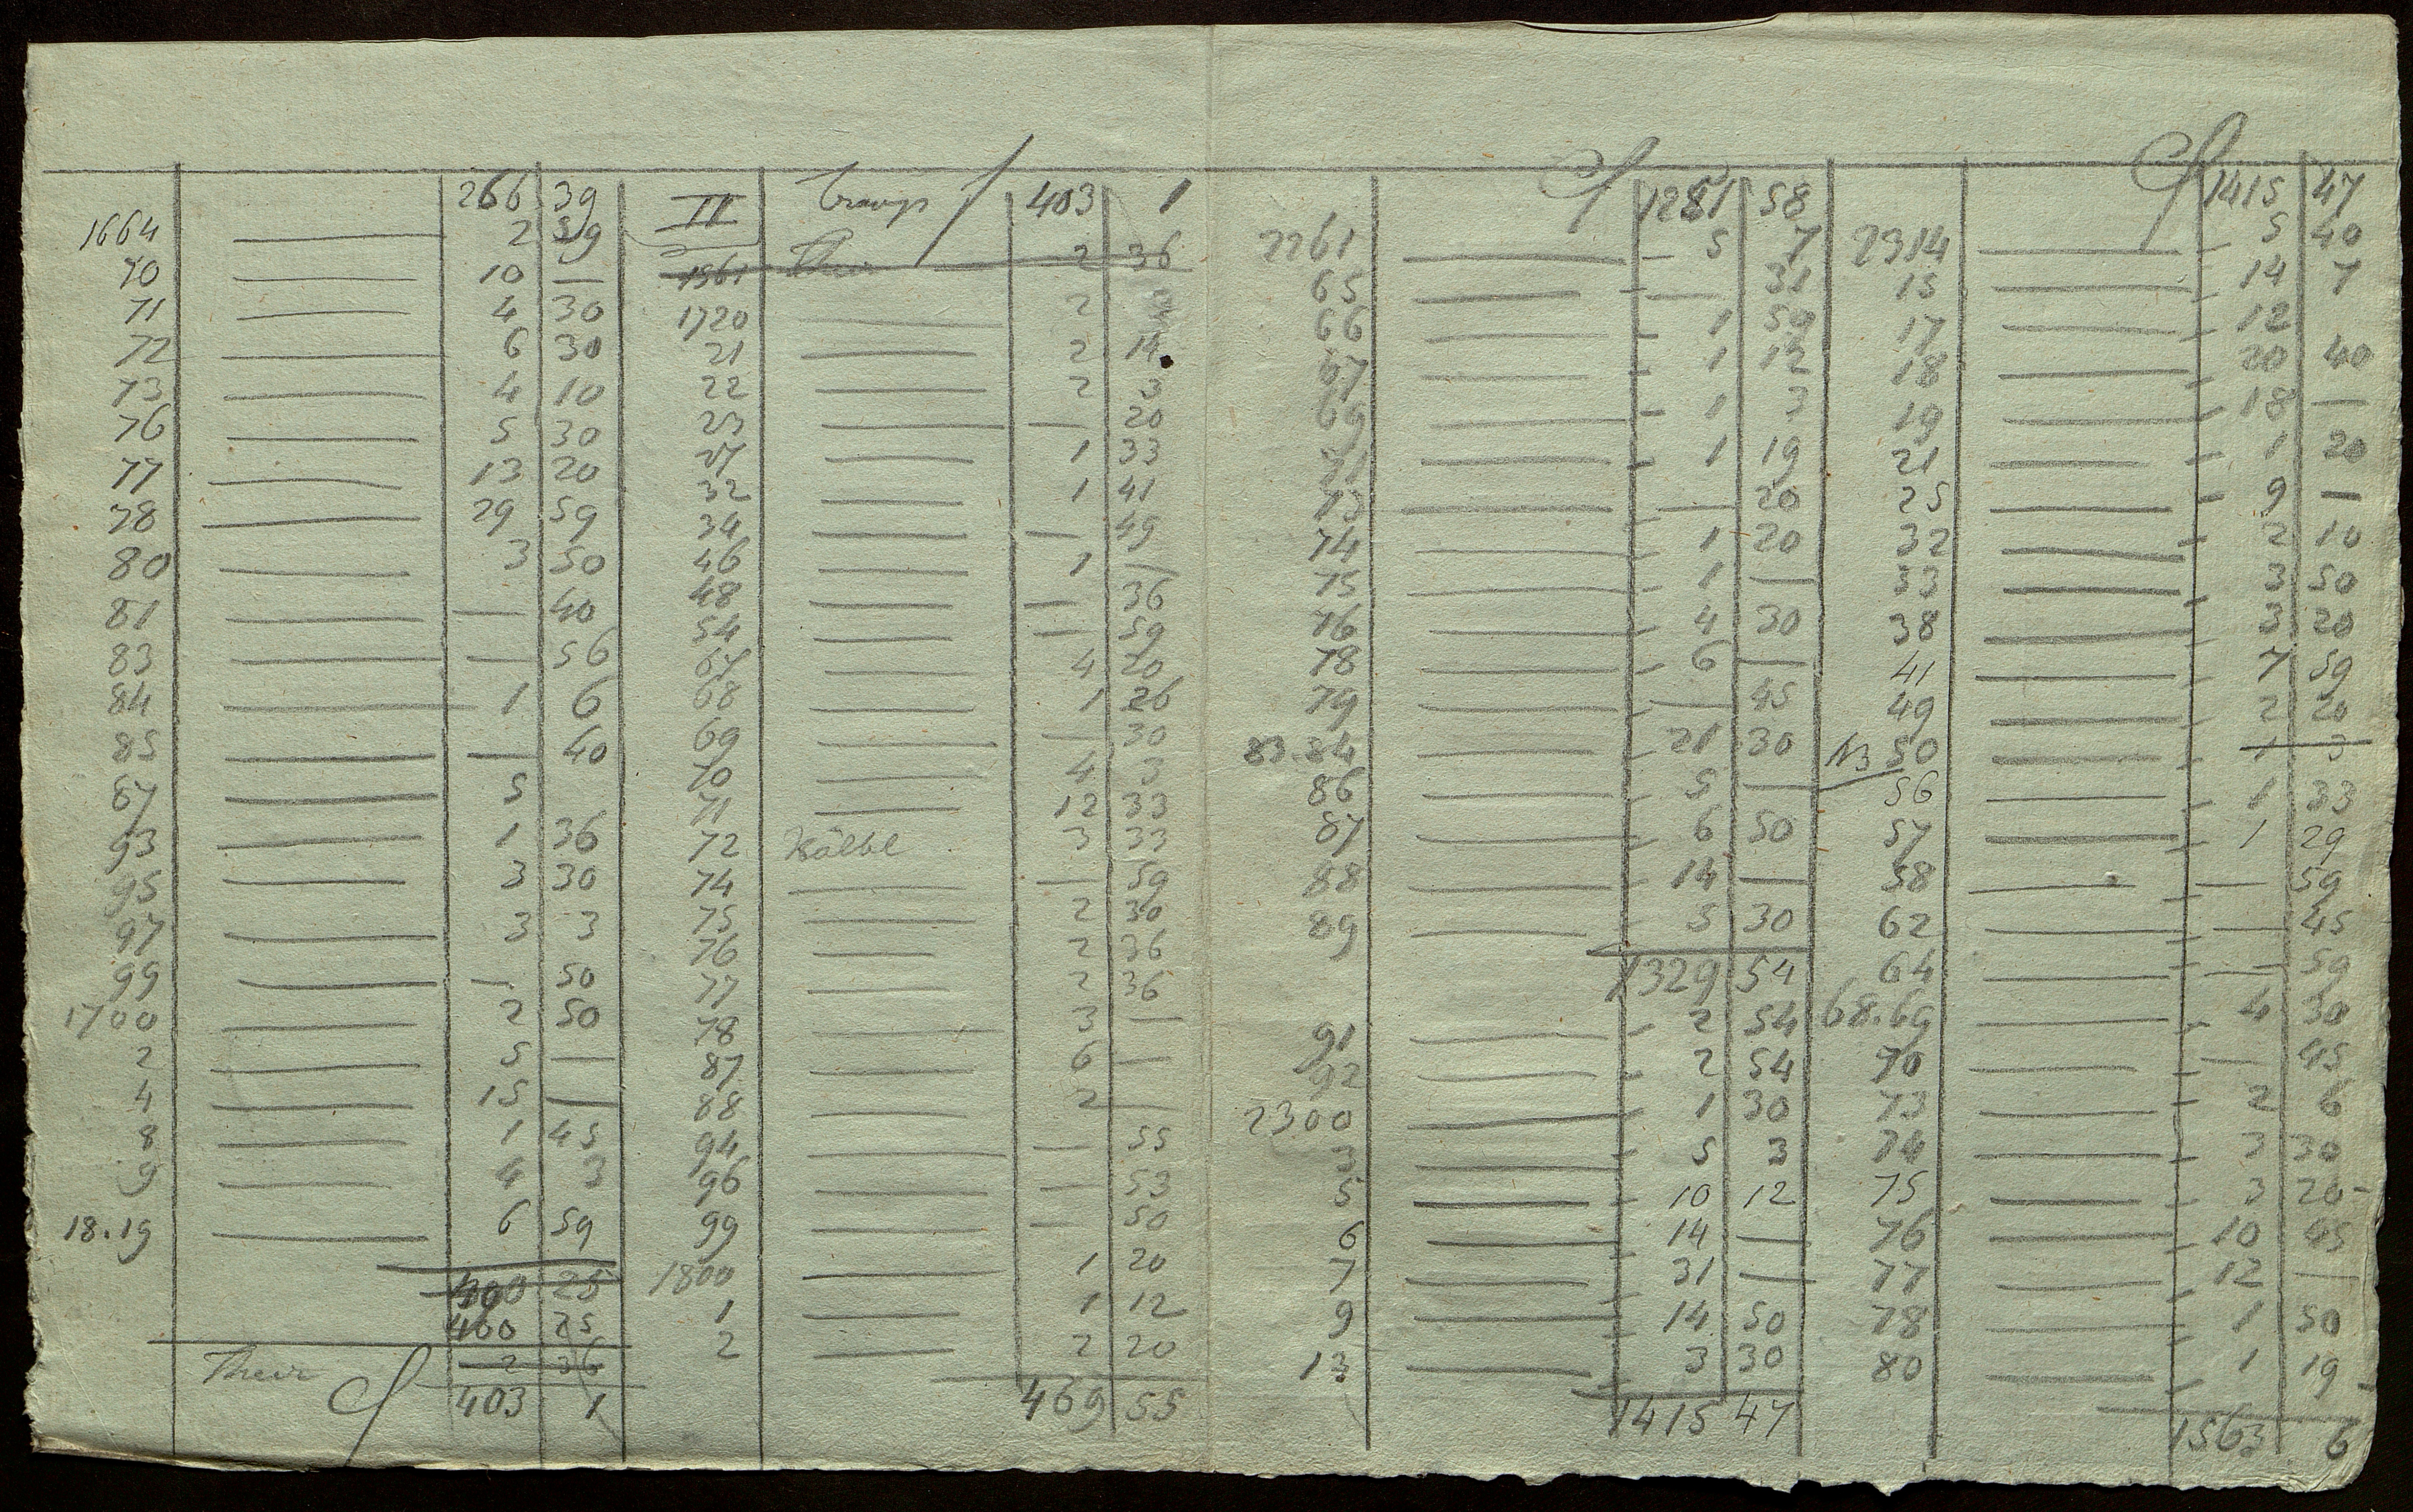 266 39
1664 — 2 59
70 — 10 —
71 — 4 30
72 — 6 30
73 — 4 10
76 — 5 30
77 — 13 20
78 — 29 59
80 — 3 50
81 — — 40
83 — — 56
84 — 1 6
85 — — 40
87 — 5
93 — 1 36
95 — 3 30
97 — 3 3
99 — — 50
1700 — 2 50
2 — 5 —
4 — 15 —
8 — 1 45
9 — 4 3
18.19 — 6 59
400 25
400 25
Their 2 36
403 1
II Transp f 403 1
1961 Their — 2 36
1720 — 2 3
21 — 2 14
22 — 2 3
23 — — 20
27 — 1 33
32 — 1 41
34 — — 49
46 — 1 —
48 — — 36
54 — — 59
67 — 4 20
68 — 1 26
69 — — 30
70 — 4 3
71 — 12 33
72 Kölbl 3 33
74 — — 59
75 — 2 30
76 — 2 36
77 — 2 36
78 — 3 —
87 — 6 —
88 — 2 —
94 — — 55
96 — — 53
99 — — 50
1800 — 1 20
1 — 1 12
2 — 2 20
469 55
f 1251 58
2261 — 5 7
65 — — 31
66 — 1 59
67 — 1 12
69 — 1 3
71 — 1 19
73 — — 20
74 — 1 20
75 — 1 —
76 — 4 30
78 — 6 —
79 — — 45
83.84 — 21 30
86 — 5 —
87 — 6 50
88 — 14 —
89 — 3 30
1329 54
91 — 2 54
92 — 2 54
2300 — 1 30
3 — 5 3
5 — 10 12
6 — 14 —
7 — 31 —
9 — 14 50
13 — 3 30
1415 47
f 1415 47
2314 — 5 40
15 — 14 7
17 — 12
18 — 20 40
19 — 18 —
21 — 1 20
25 — 9 —
32 — 2 10
33 — 3 50
38 — 3 20
41 — 7 59
49 — 2 20
N3 50 — 1 3
56 — 1 33
57 — 1 29
58 — — 59
62 — — 45
64 — — 59
68.69 — 4 30
70 — — 45
73 — 2 6
74 — 3 30
75 — 3 20
76 — 10 45
77 — 12 —
78 — 1 50
80 — 1 19
1563 6